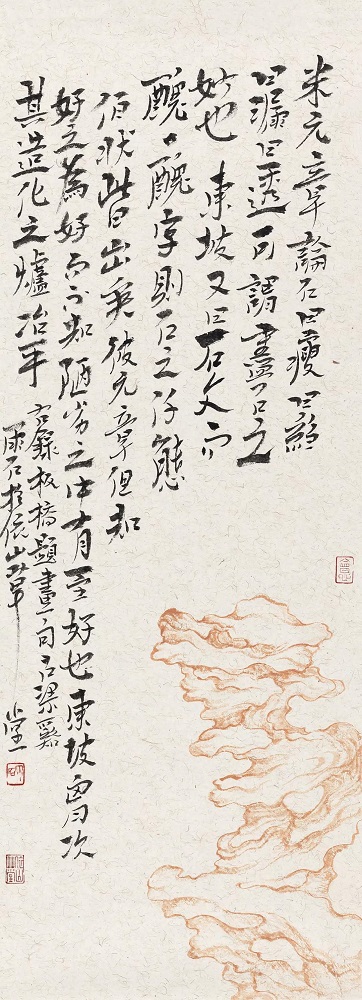 米元章論石曰瘦曰縐
曰漏曰透可謂盡石之
妙也東坡又曰石文而
醜一醜字則石之仟態
佰狀皆出矣彼元章但知
好之為好而不知陋劣之中有至好也東坡胸次
其造化之爐冶乎
右錄板橋題畫句於梁谿
雨石於依山草堂